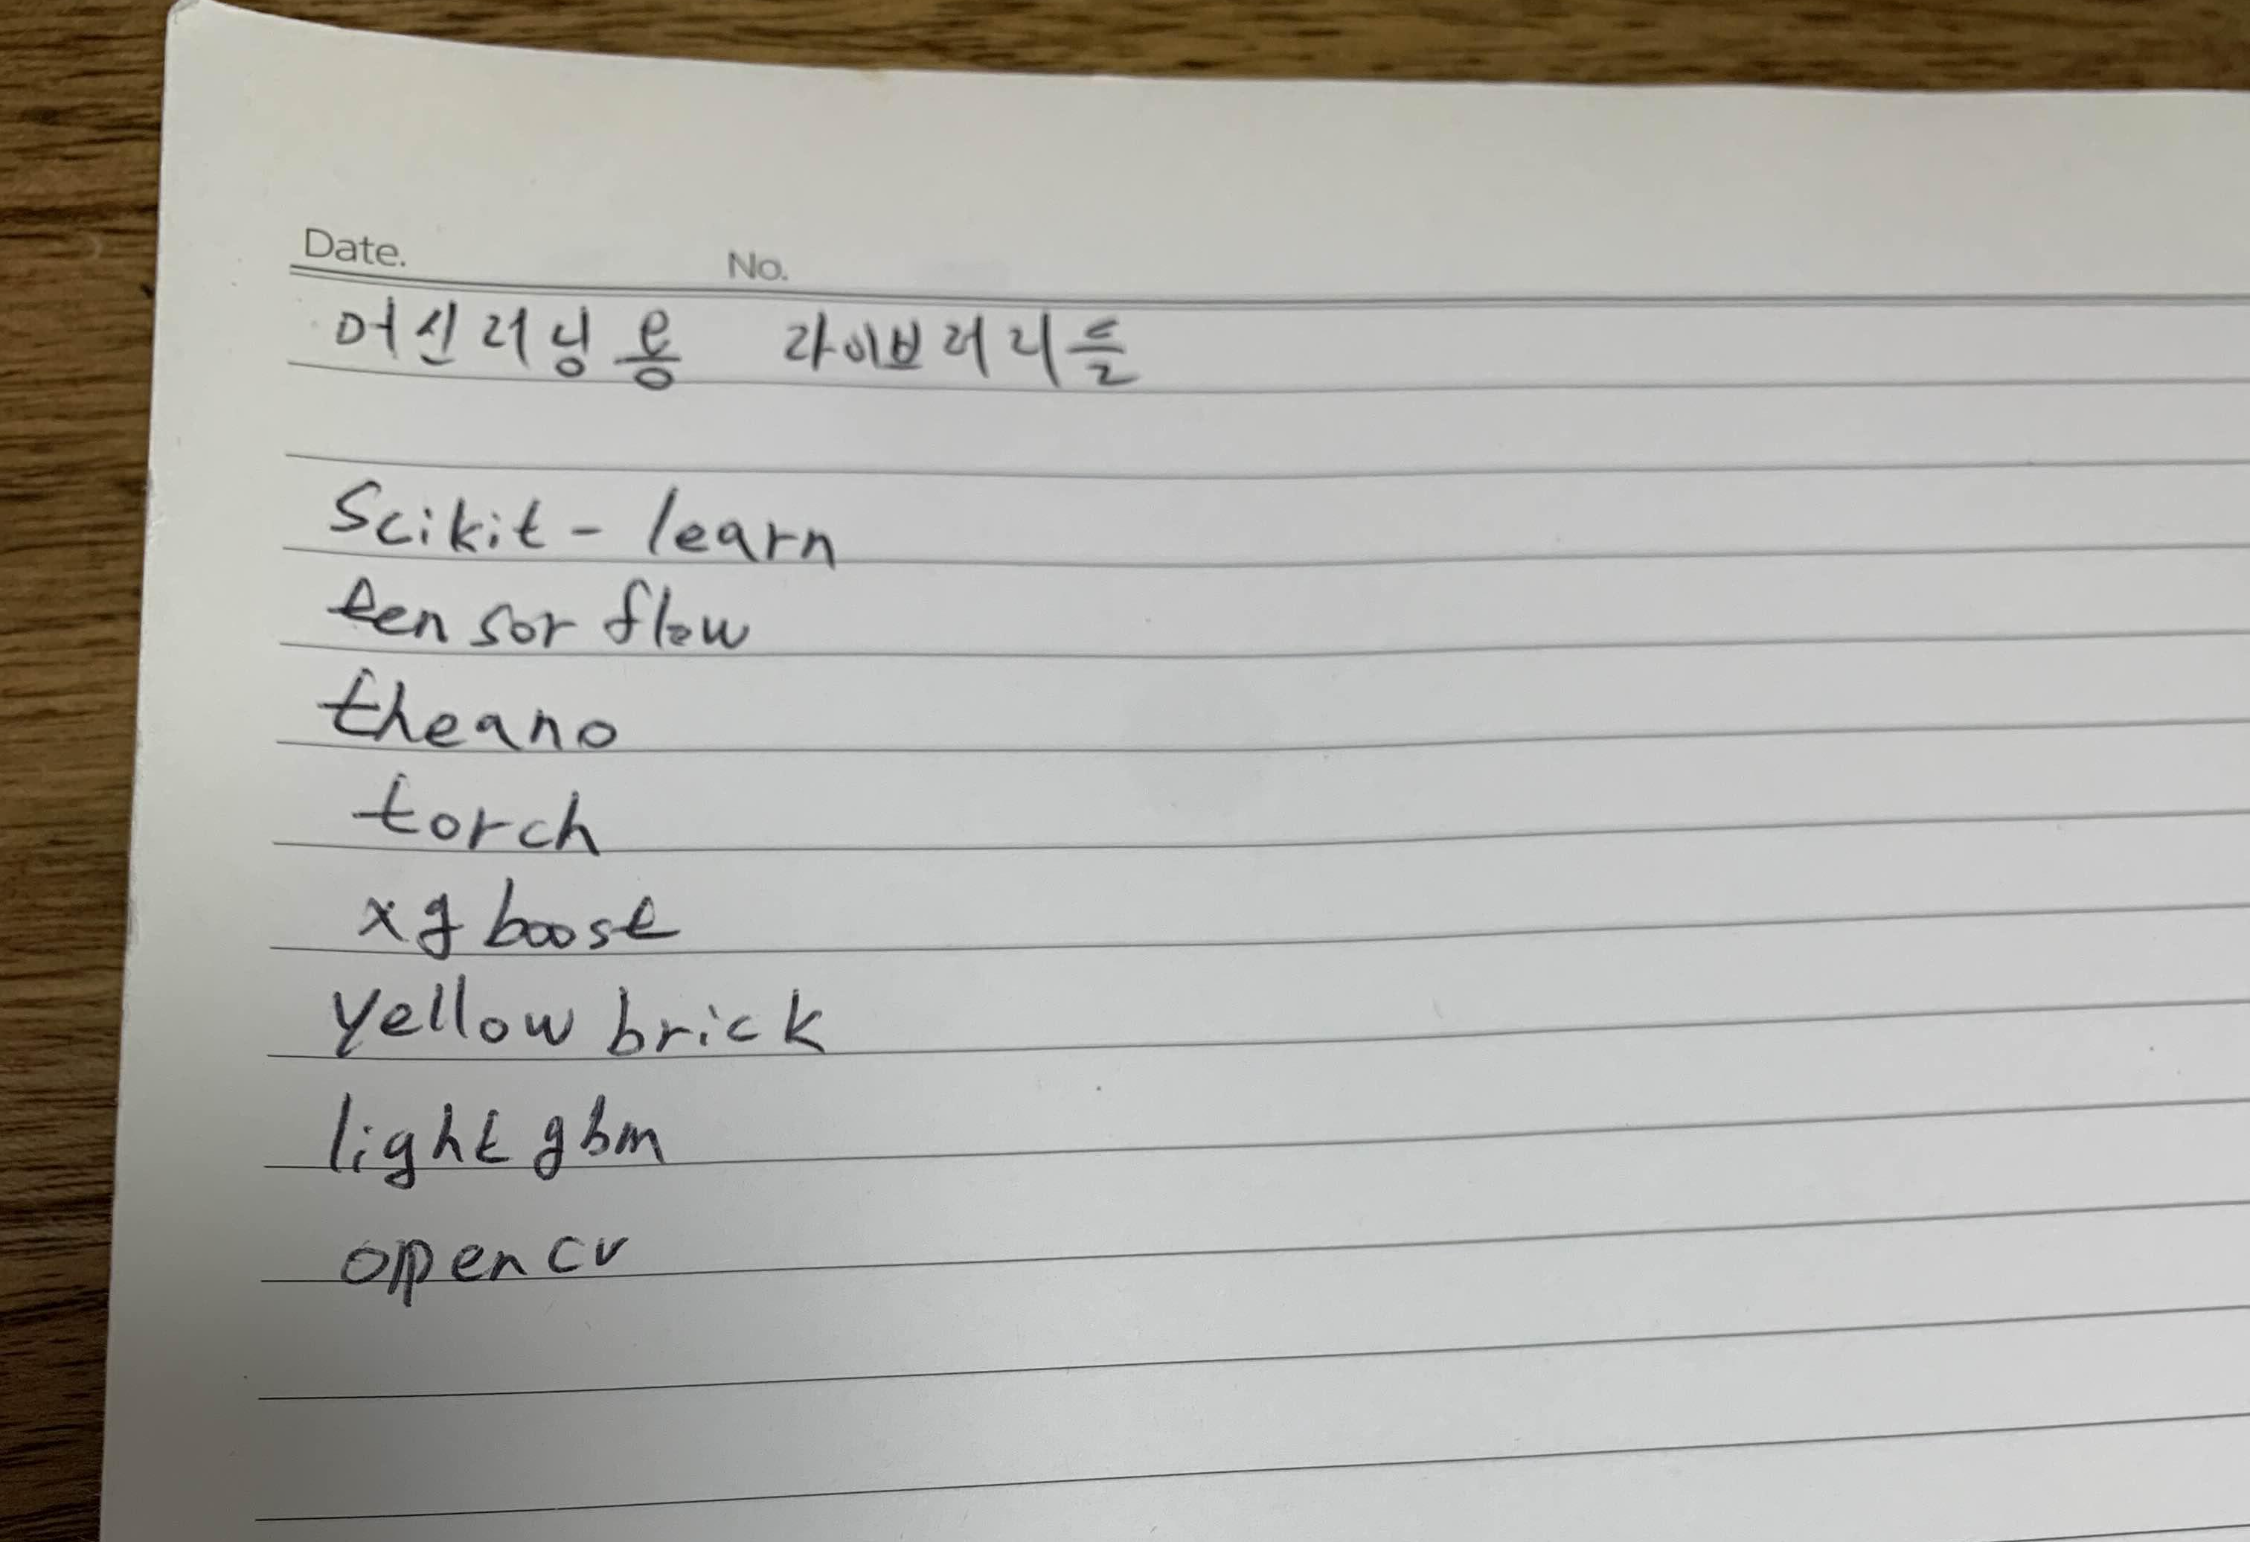 Date. No.
머신러닝용 라이브러리들
Scikit-learn
tensorflow
theano
torch
xgboost
yellow brick
light gbm
opencv